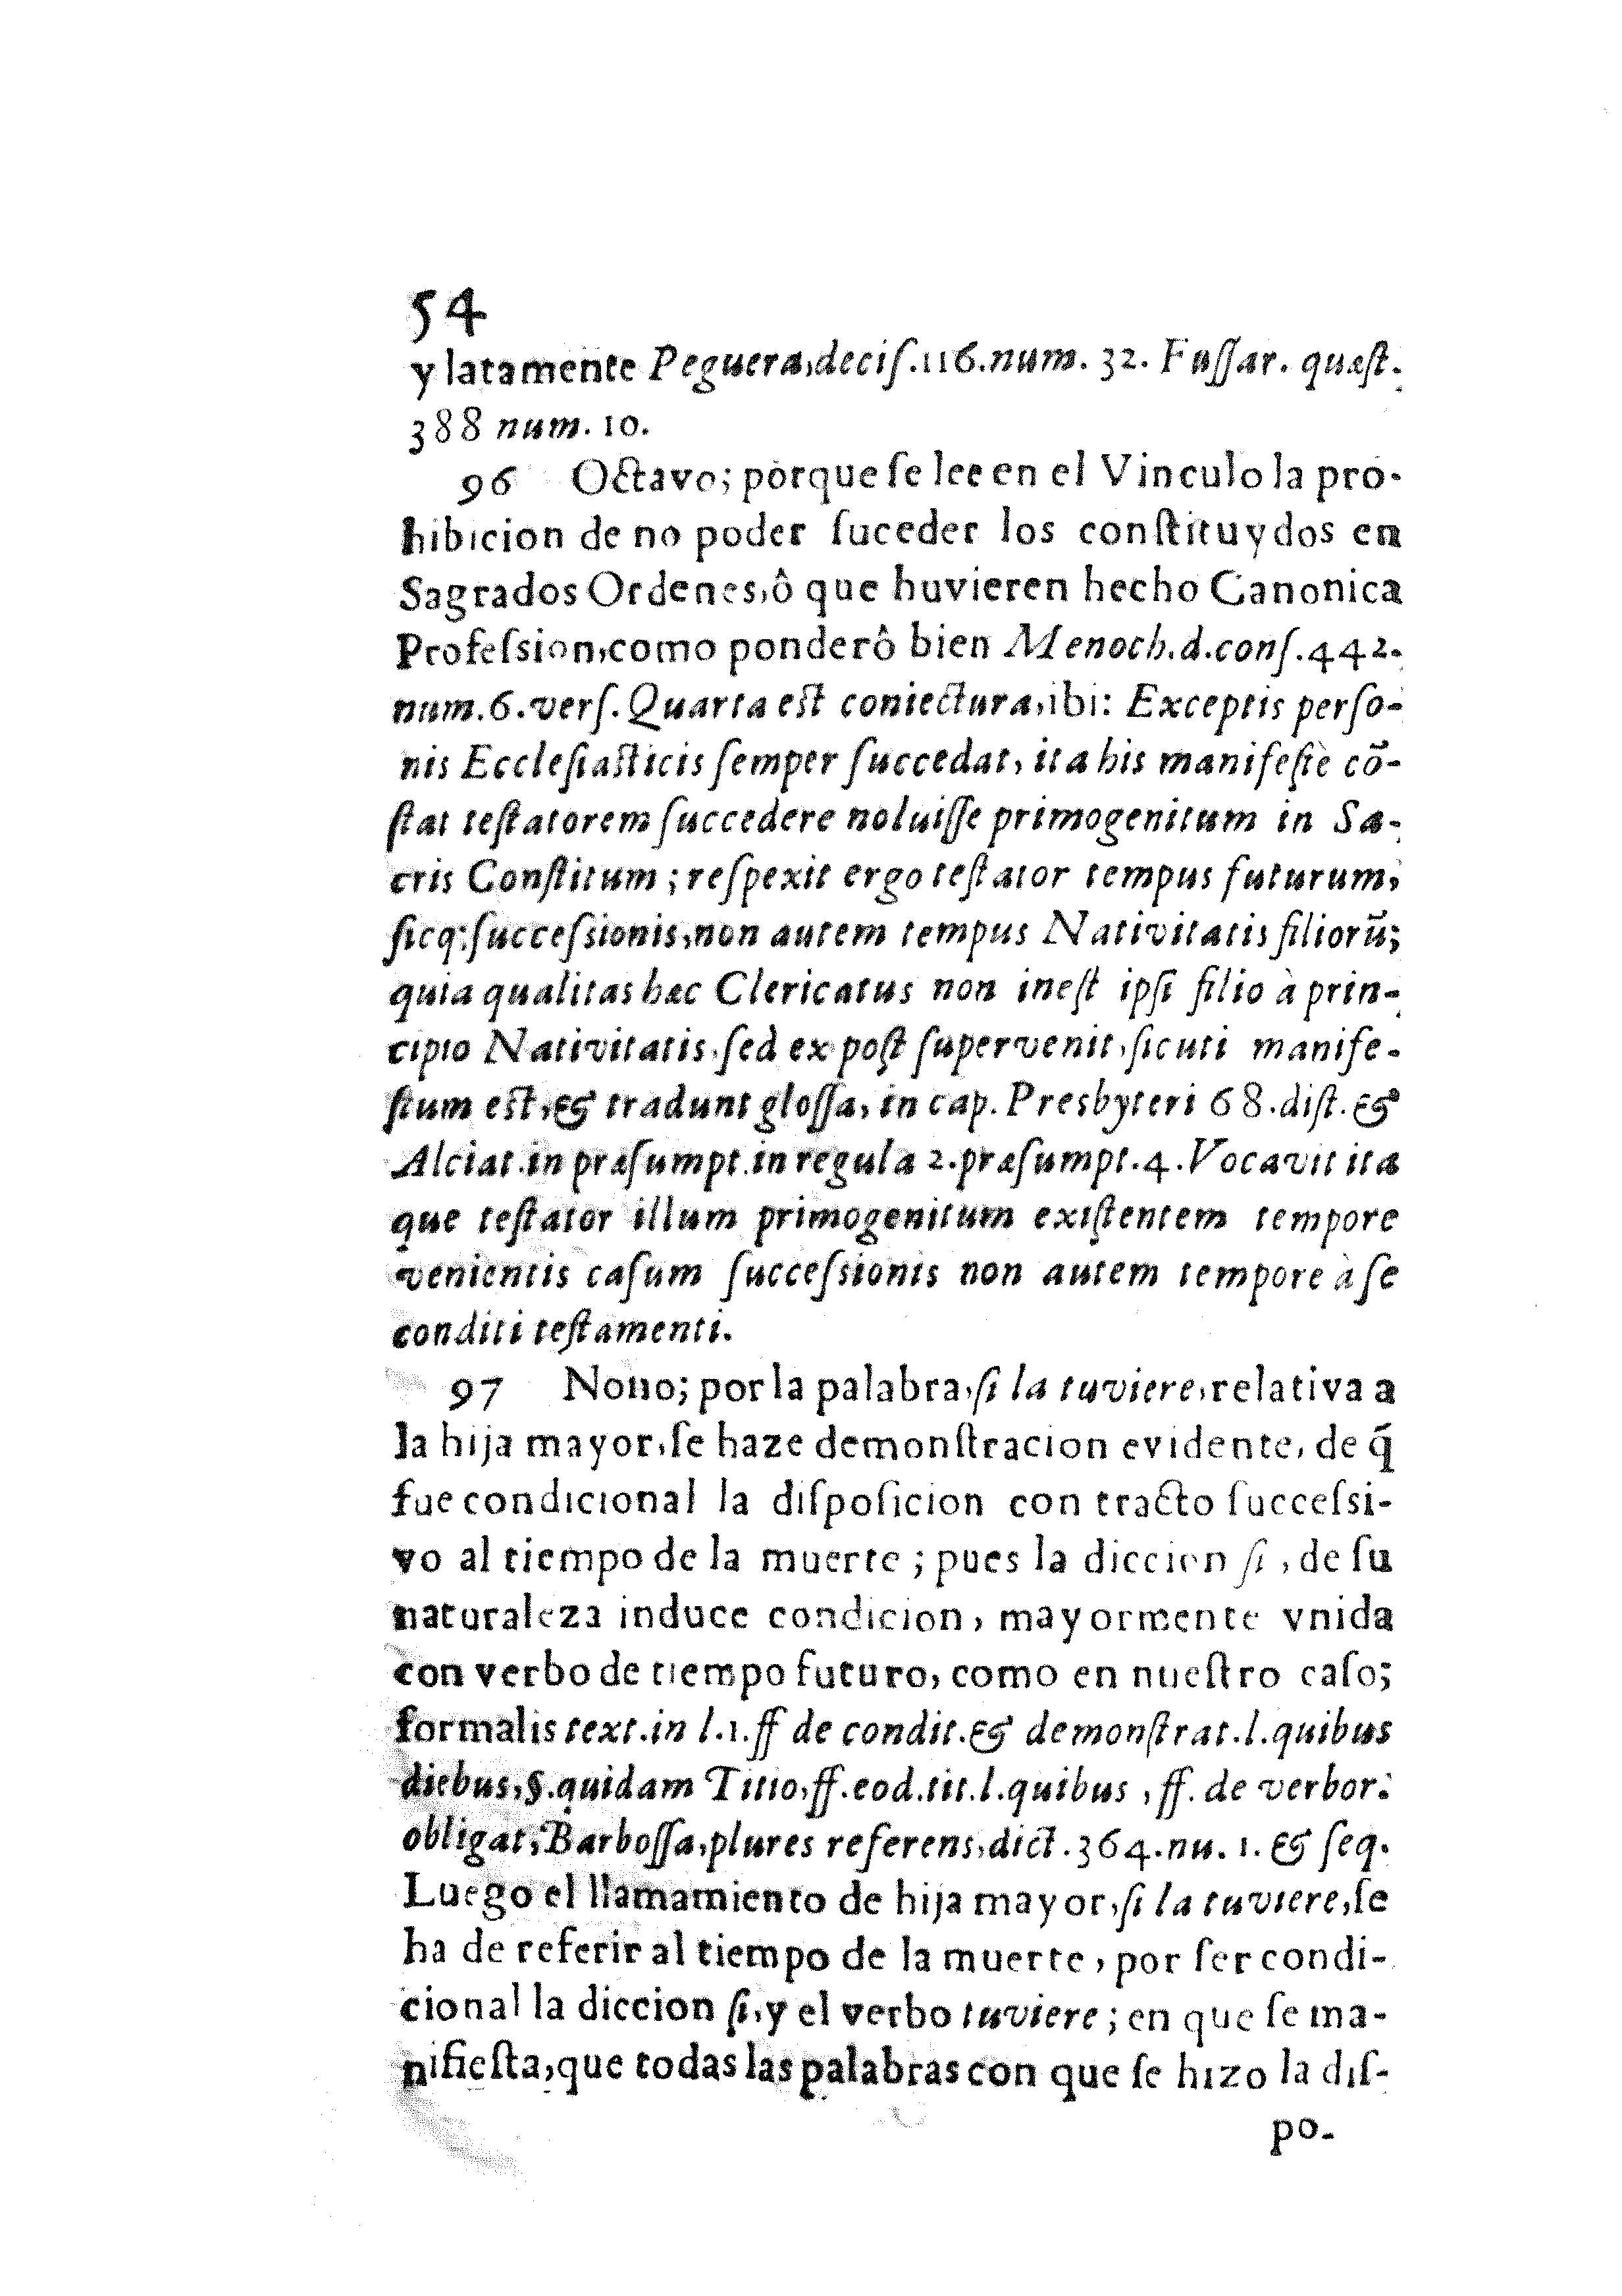 54
y latamente Peguera, deciſ.116.num. 32. Fuſſar. quæſt.
388 num. 10.
96 Octavo; porque ſe lee en el Vinculo la pro-
hibicion de no poder ſuceder los conſtituydos en
Sagrados Ordenes, ô que huvieren hecho Canonica
Profeſsion, como ponderô bien Menoch.d.conſ.442.
num.6.verſ.Quarta eſt coniectura, ibi: Exceptis perſo-
nis Eccleſiaſticis ſemper ſuccedat, ita his manifeſtè cō-
ſtat teſtatorem ſuccedere noluiſſe primogenitum in Sa-
cris Conſtitum; reſpexit ergo teſtator tempus futurum,
ſicq; ſucceſsionis, non autem tempus Nativitatis filiorū;
quia qualitas hæc Clericatus non ineſt ipſi filio à prin-
cipio Nativitatis, ſed ex poſt ſupervenit, ſicuti manife-
ſtum eſt, & tradunt gloſſa, in cap. Presbyteri 68.diſt. &
Alciat.in præſumpt.in regula 2.præſumpt.4.Vocavit ita
que teſtator illum primogenitum exiſtentem tempore
venientis caſum ſucceſsionis non autem tempore à ſe
conditi teſtamenti.
97 Nono; por la palabra, ſi la tuviere, relativa a
la hija mayor, ſe haze demonſtracion evidente, de q̃
fue condicional la diſpoſicion con tracto ſucceſsi-
vo al tiempo de la muerte; pues la diccion ſi, de ſu
naturaleza induce condicion, mayormente vnida
con verbo de tiempo futuro, como en nueſtro caſo;
formalis text.in l.1.ff de condit.& demonſtrat.l.quibus
diebus, §.quidam Titio, ff.eod.tit.l.quibus, ff. de verbor.
obligat, Barboſſa, plures referens, dict.364.nu. 1. & ſeq.
Luego el llamamiento de hija mayor, ſi la tuviere, ſe
ha de referir al tiempo de la muerte, por ſer condi-
cional la diccion ſi, y el verbo tuviere; en que ſe ma-
nifieſta, que todas las palabras con que ſe hizo la diſ-
po-